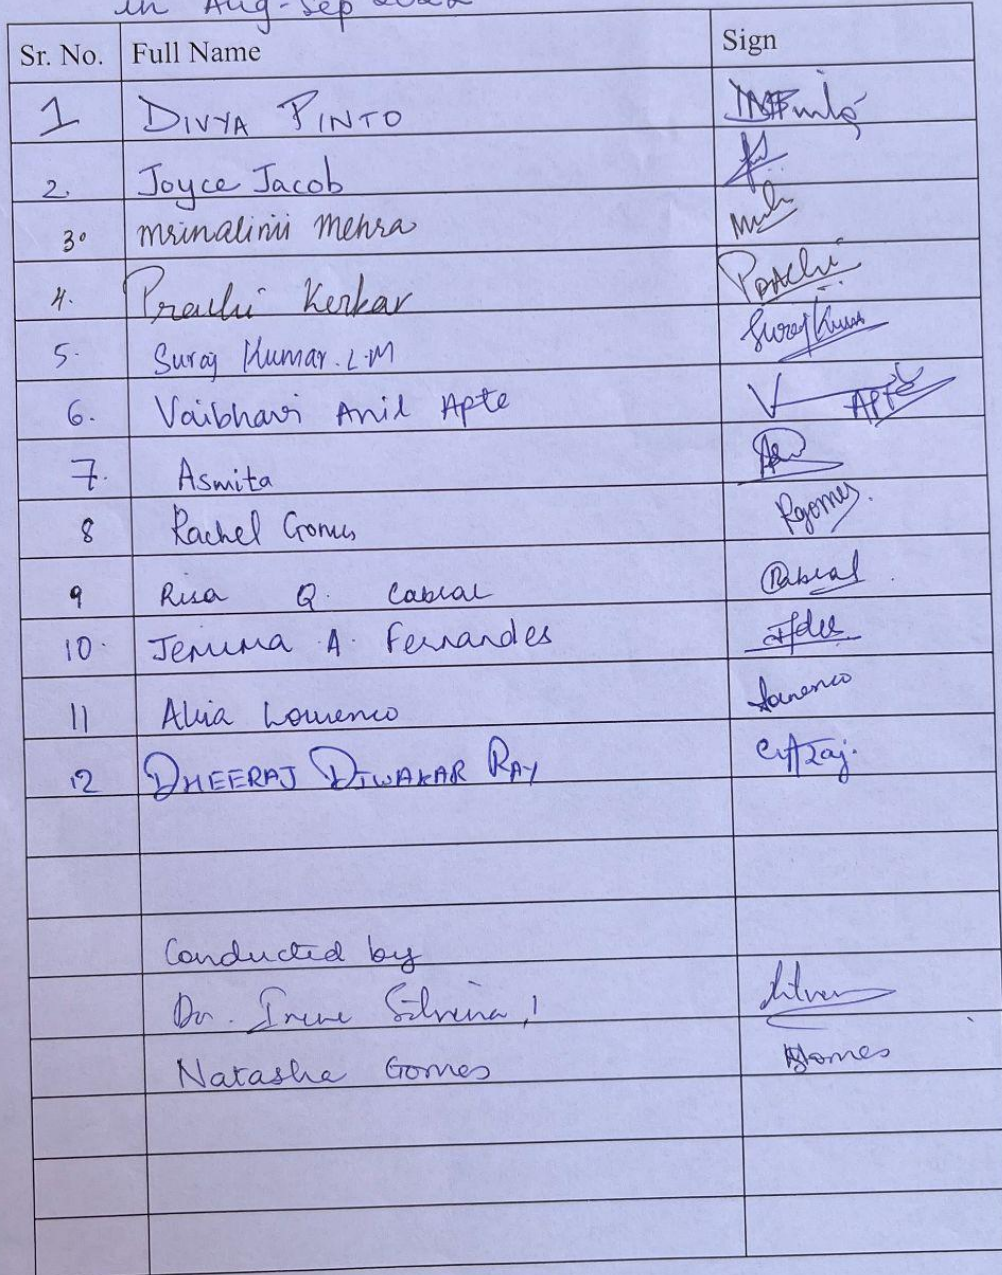 in Aug-Sep 2022
Sr. No. Full Name Sign
1 DIVYA PINTO
2. Joyce Jacob
3. Mrinalinii Mehra
4. Prachi Kerkar Prachi
5. Suraj Kumar. L.M Suraj Kumar
6. Vaibhavi Anil Apte V APTE
7. Asmita
8 Rachel Gomes Rgomes.
9 Risa Q. Cabral Cabral
10. Jemima A. Fernandes
11 Alvia Lourenco
12 DHEERAJ DIWAKAR RAY
Conducted by
Dr. Irene Silveira,
Natasha Gomes